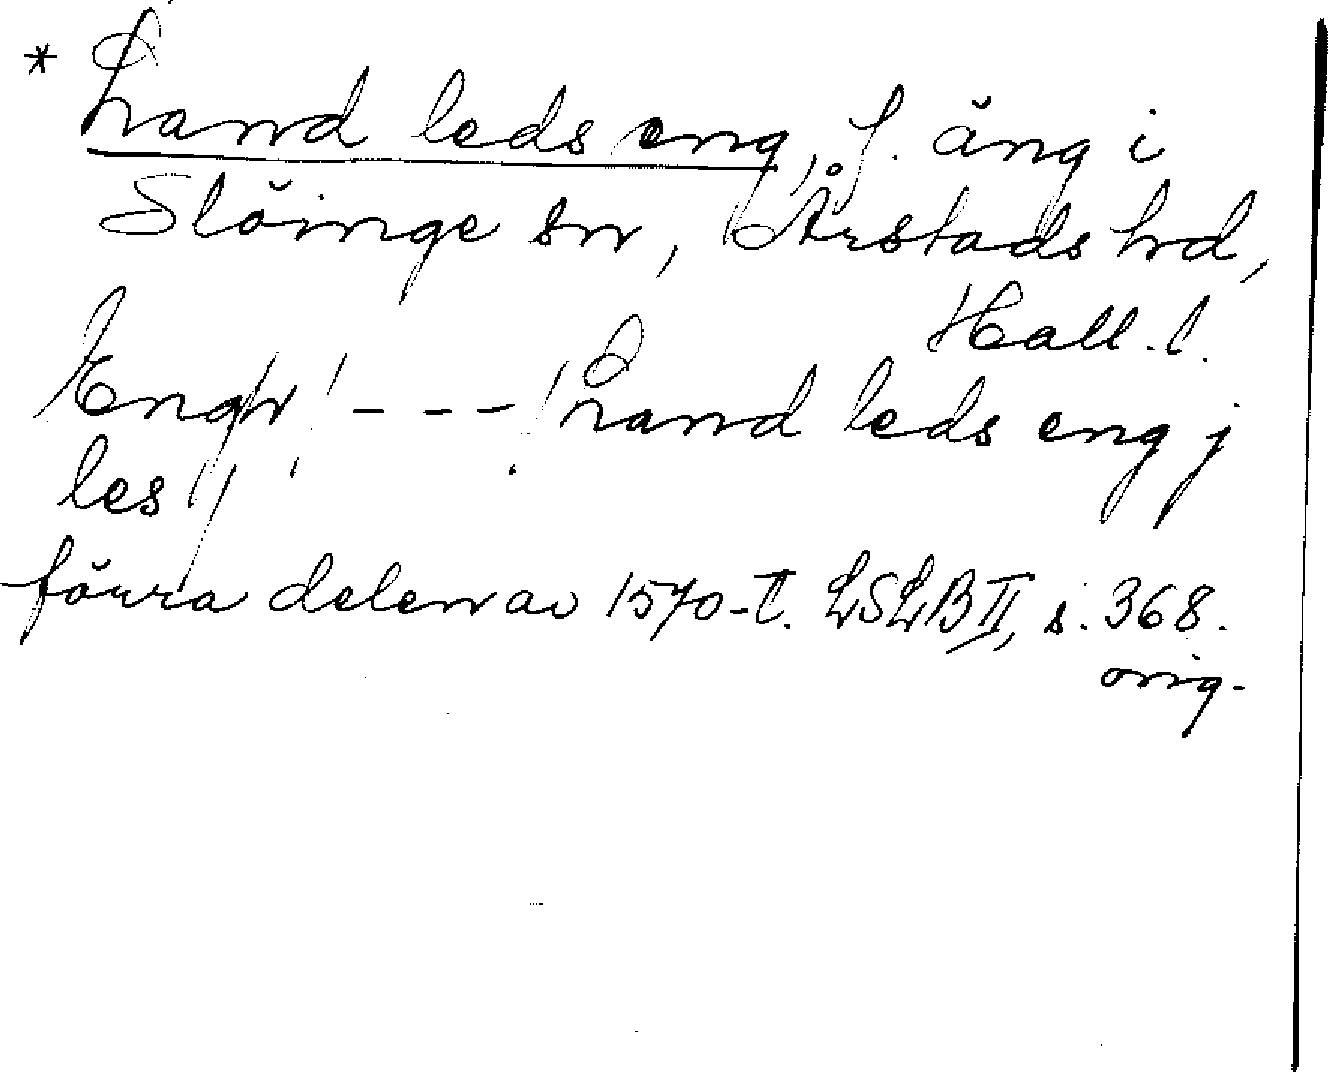 * hand leds eng, f. äng i
Slöinge sn, Årstads hd,
Hall. l.
Engh / - - - / hand leds eng j
les //
förra delen av 1570-t. LSLB II, s. 368.
orig.